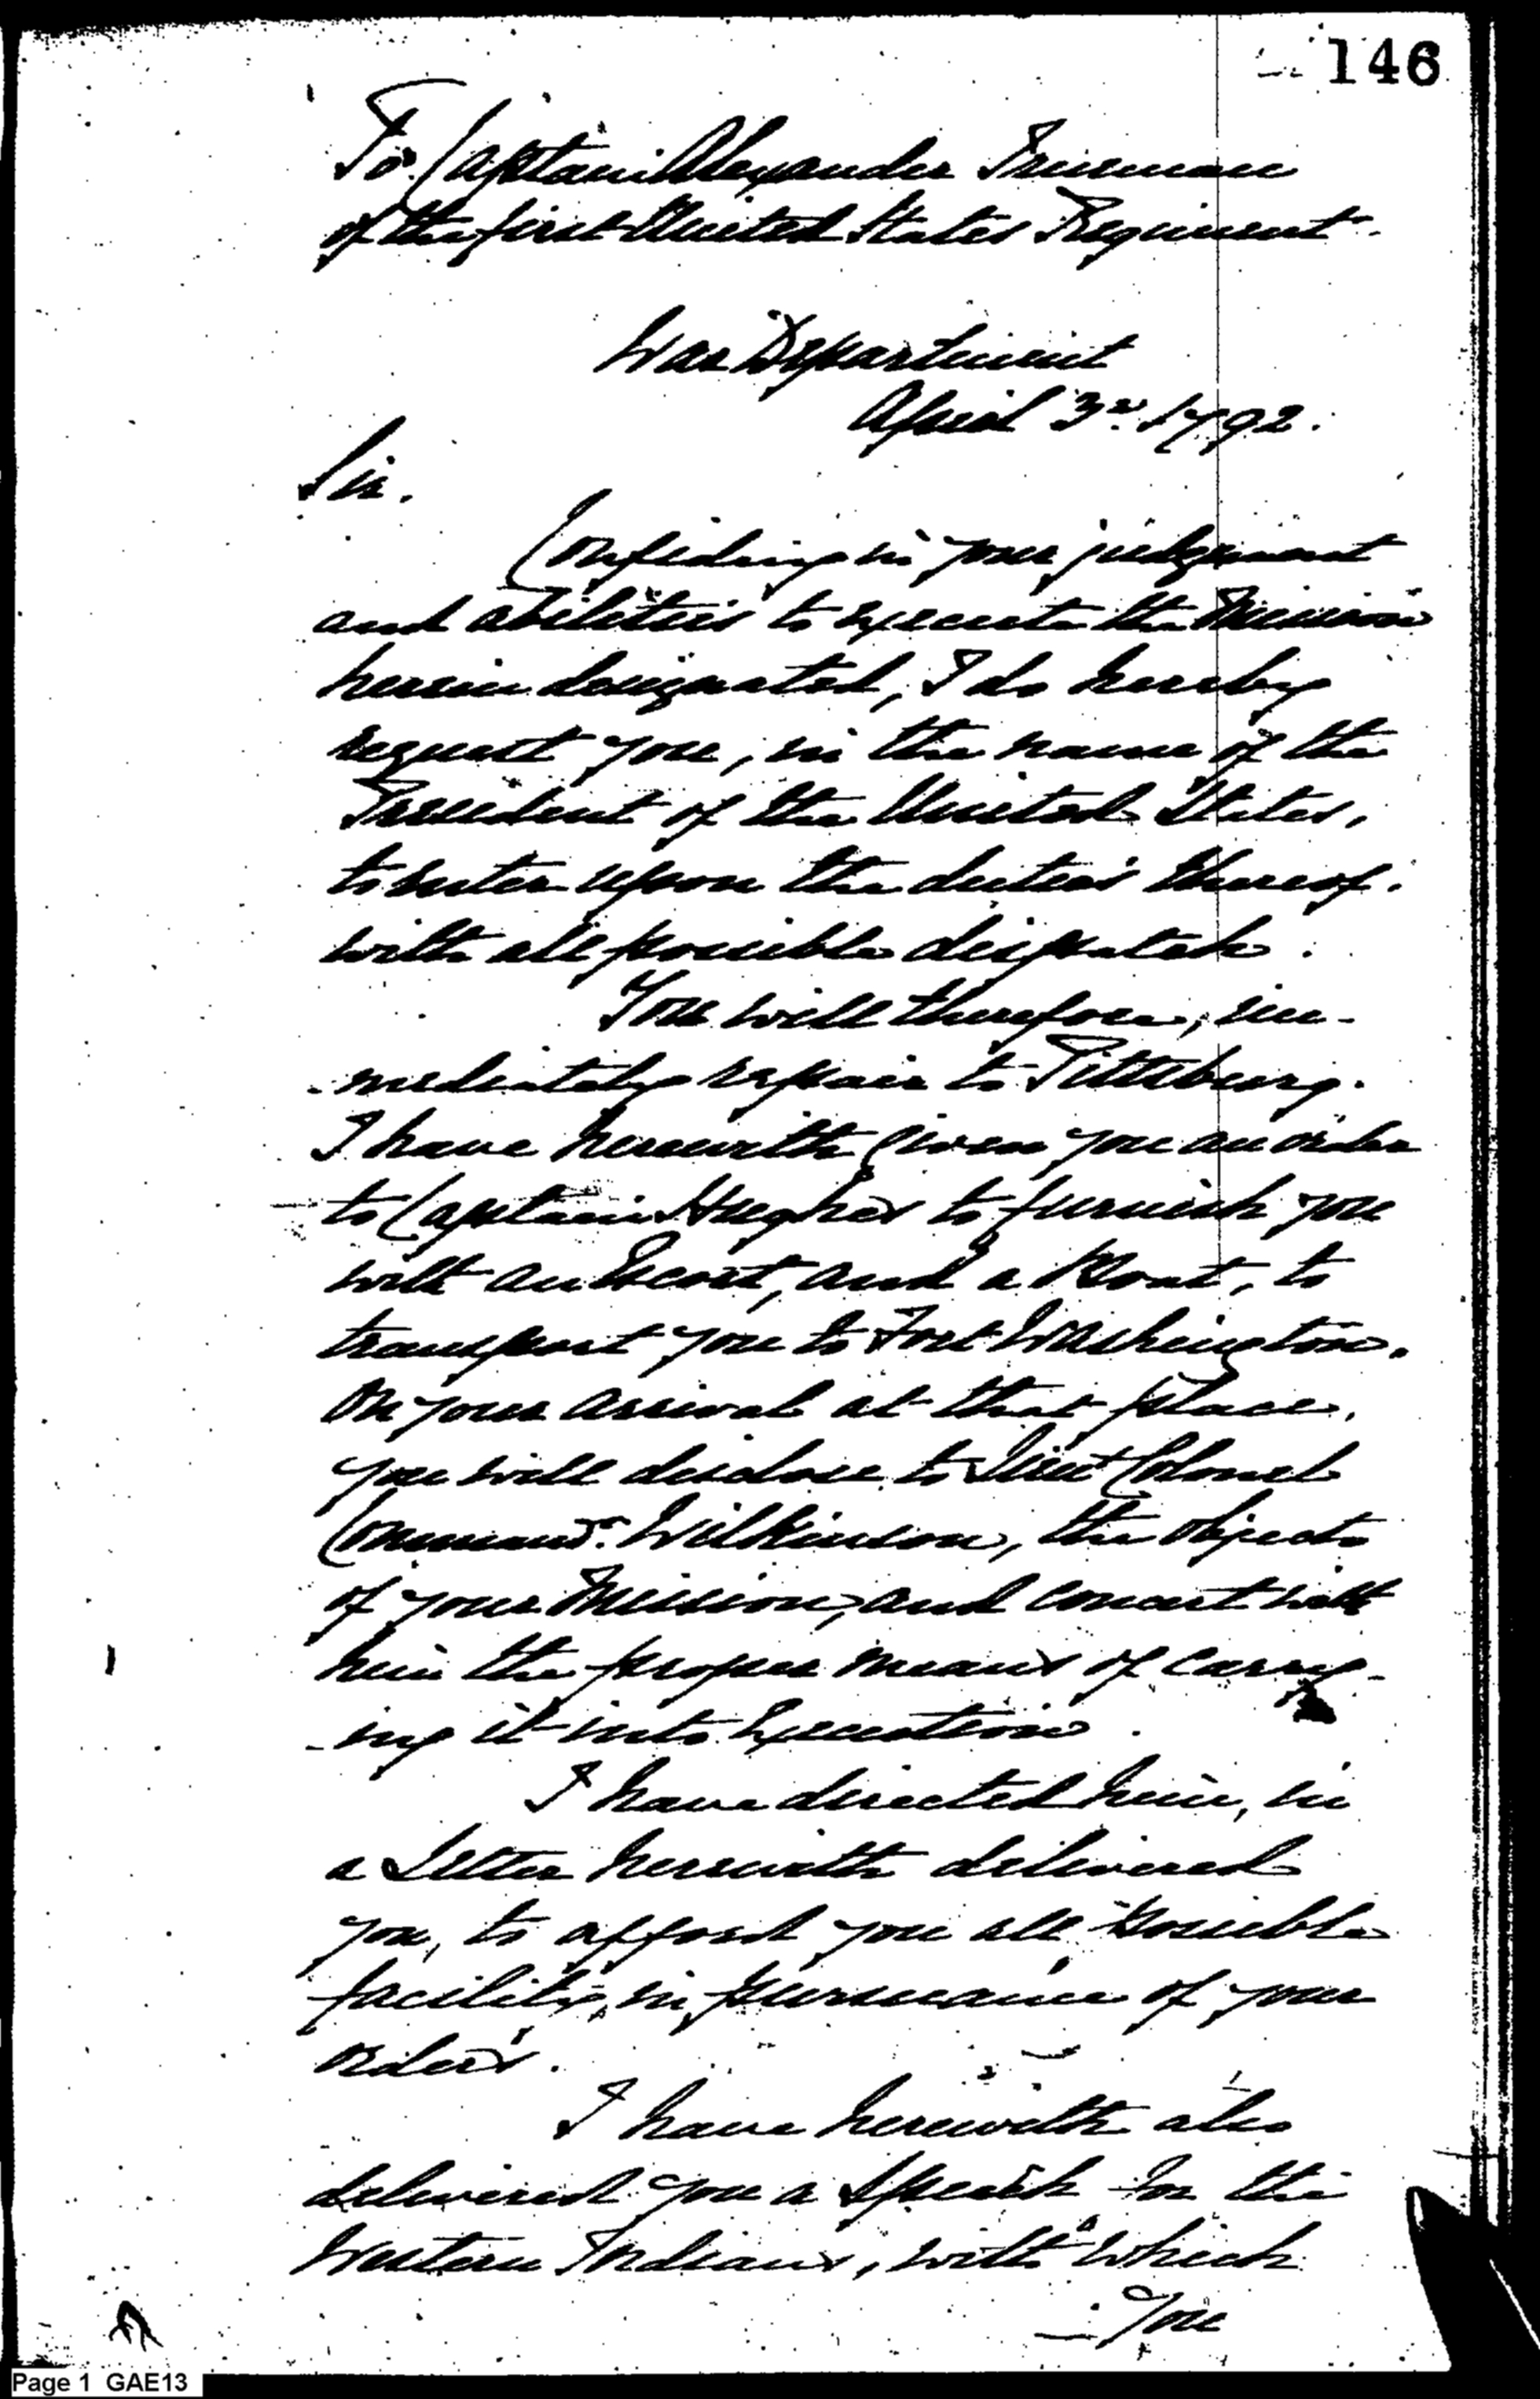 146
To Captain Alexander Trueman
of the first United States Regiment.
War Department
April 3d. 1792.
Sir.
Confiding in your judgment
and abilities to execute the Mission
herein designated, I do hereby
request you, in the name of the
President of the United States,
to enter upon the duties thereof.
with all possible dispatch.
You will therefore, im-
-mediately repair to Pittsburg.
I have herewith given you an order
to Captain Hughes to furnish you
with an Escort, and a Boat, to
transport you to Fort Washington.
On your arrival at that place,
you will disclose to Lieut Colonel
Command.t Wilkinson, the objects
of your Mission, and concert with
him the proper means of carry-
-ing it into Execution.
I have directed him, in
a Letter herewith delivered
you, to afford you all possible
facility, in pursuance of your
orders.
I have herewith also
delivered you a Speech for the
Western Indians, with which
You
Page 1 GAE13